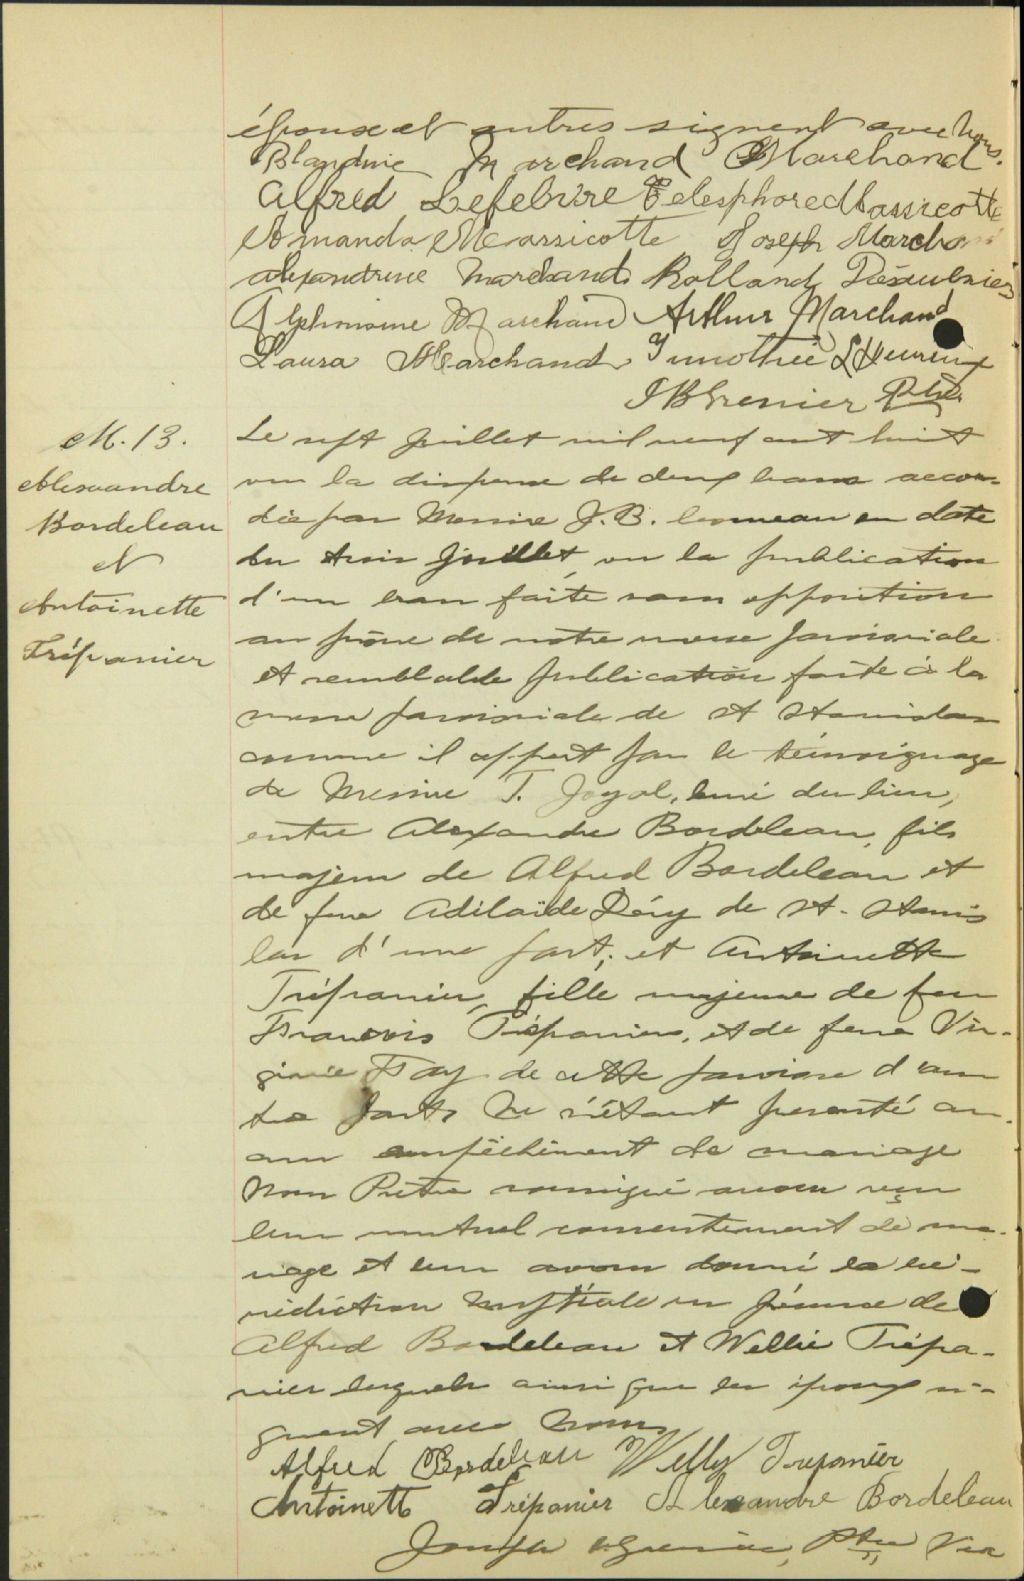 époux et autres signent avec Nous.
Blandine Marchand Marchand
Alfred Lefebvre Telesphore Massicotte
Amanda Massicotte Joseph Marchand
Alexandrine Marchand Rolland Désaulniers
Alphonsine Marchand Arthur Marchand
Laura Marchand Timothée L'Heureux
J B Grenier Ptre.
M. 13.
Alexandre
Bordeleau
et
Antoinette
Trépanier
Le sept juillet mil neuf cent huit
vu la dispense de deux bans accor-
dée par Messire J. B. Comeau en date
du trois juillet, vu la publication
d'un ban faite sans opposition
au prône de notre messe paroissiale
et semblable publication faite à la
messe paroissiale de St Stanislas
comme il appert par le témoignage
de Messire T. Joyal, curé du lieu,
entre Alexandre Bordeleau, fils
majeur de Alfred Bordeleau et
de feue Adilaïde Déry de St. Stanis
las d'une part; et Antoinette
Trépanier, fille majeure de feu
François Trépanier, et de feue Vir-
ginie Fay de cette paroisse d'au
tre part, Ne s'étant présenté au-
cun empêchement de mariage
Nous Prêtre soussigné avons reçu
leur mutuel consentement de ma-
riage et leur avons donné la bé-
nédiction nuptiale en présence de
Alfred Bordeleau et Wellie Trépa-
nier lesquels ainsi que les époux si-
gnent avec Nous
Alfred Bordeleau Willy Trepanier
Antoinette Trépanier Alexandre Bordeleau
Joseph Grenier, Ptre Vic